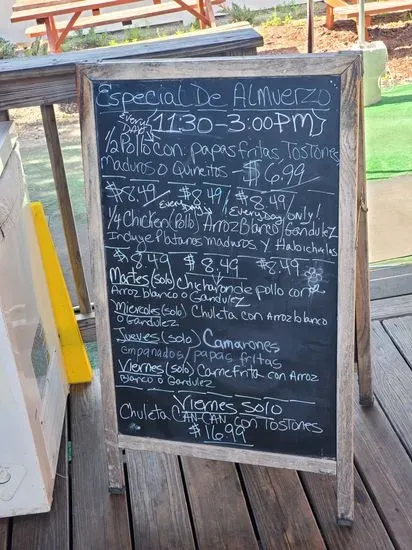 Especial De Almuerzo
Every Days {11:30 - 3:00 PM}
1/2 Pollo con: papas fritas Tostones
maduros o Quineitos - $6.99
$8.49 $8.49 $8.49
Everybody Everybody only!
1/4 Chicken (Pollo) Arroz Blanco Gandulez
Incluye Platanos maduros Y Habichuelas
$8.49 $8.49 $8.49
Martes (solo) Chicharon de pollo con
Arroz blanco o Gandulez
Miercoles (solo) Chuleta con Arroz blanco
o Gandulez
Jueves (solo) Camarones
empanados/papas fritas
Viernes (solo) Carne frita con Arroz
Blanco o Gandulez
Viernes solo
Chuleta CAN-CAN con Tostones
$16.99